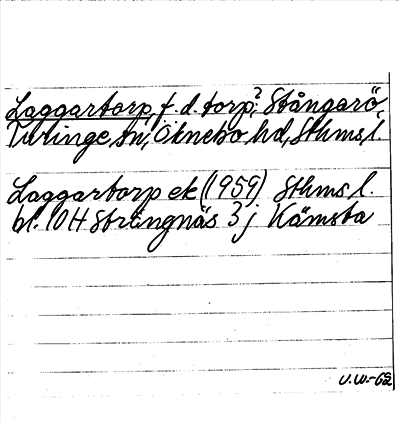 Laggartorp, f.d. torp?, Stångarö,
Turinge sn, Öknebo hd, Sthms l.
Laggartorp ek (1959) Sthms l.
bl. 10H Strängnäs 3j Kämsta
U.W.-62